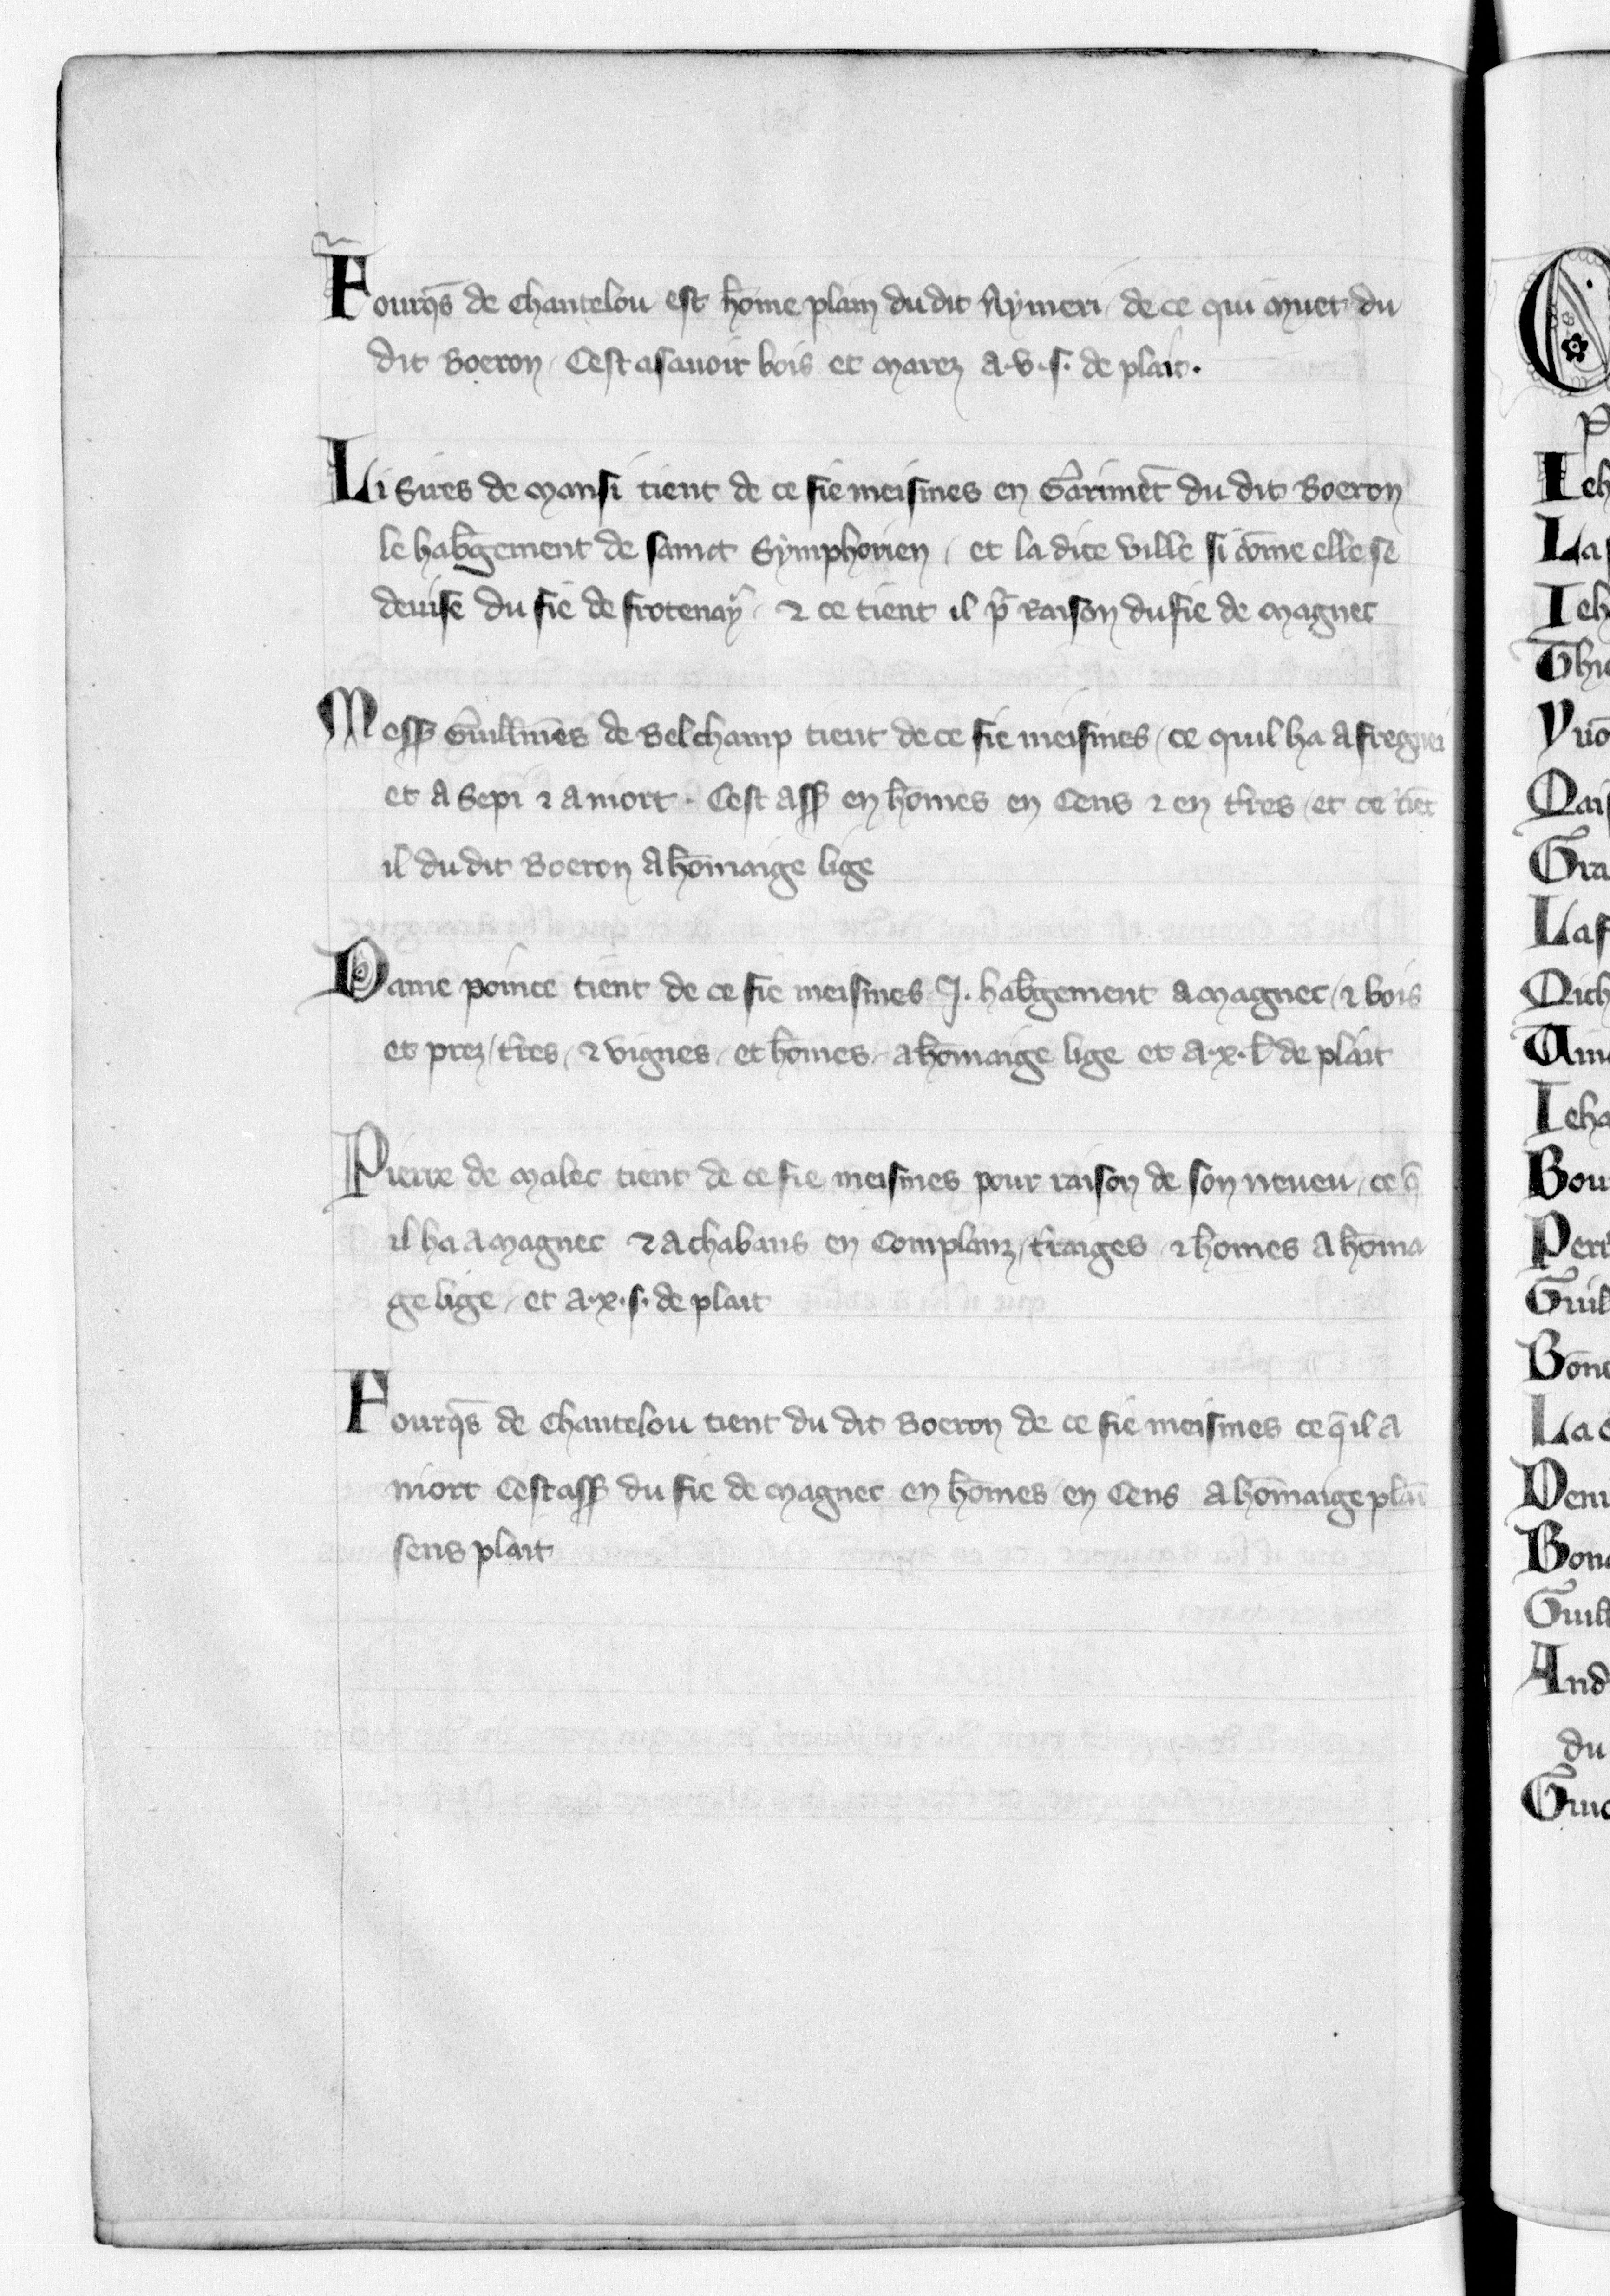 Fourqs̄ de Chantelou est hōme plain du dit Aymeri / de ce qui muet du
dit Boeron / Cest asauoir bois et marez a .v. s. de plait .
Li Sires de Mansi tient de ce fie meismes en Gârimēt du dit Boeron
le hab̄gement de sainct Symphorien / et la dite ville si cōme elle se
deuise du fie de frotenay / ⁊ ce tient il pr̄ Raison du fie de Magnec
Mess̄ Guillm̄es de Belchamp tient de ce fie meismes / ce quil ha a
et a Sepi ⁊ a niort . Cest ass̄ en hōmes en Cens ⁊ en t̄res / et ce tiēt
il du dit Boeron a hōmaige lige
Dame poince tient de ce fie meismes .J. hab̄gement a Magnec / ⁊ bois
et prez / t̄res / ⁊ vignes / et hōmes / a hōmaige lige et a .x. l̄ de plait
Pierre de Malec tient de ce fie meismes pour raison de son neueu / ce q̄
il ha a Magnec ⁊ a chabans en Complanz / t̄raiges / ⁊ homes a hōma
ge lige / et a .x. s. de plait
Fourqs̄ de Chantelou tient du dit Boeron de ce fie meismes ce q̄ il a
niort Cest ass̄ du fie de Magnec en hōmes / en Cens a hōmaige plaī
sens plait